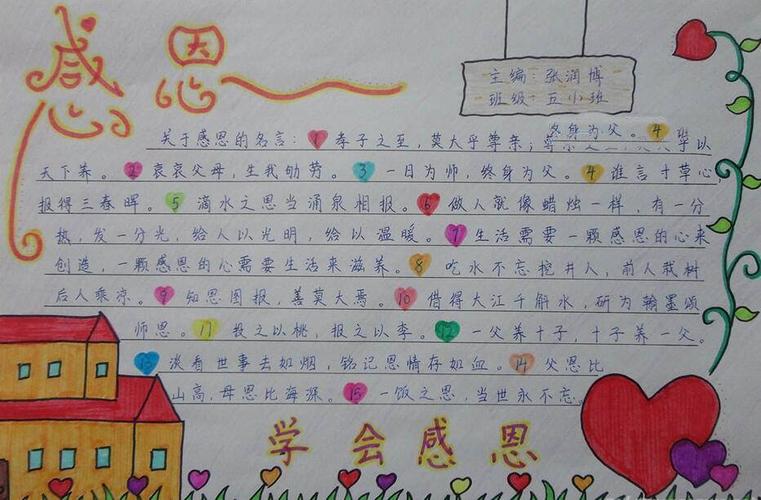 感恩
主编：张润博
班级：五小班
终身为父。4
关于感恩的名言：1 孝子之至，莫大乎尊亲；以
天下养。2 哀哀父母，生我劬劳。3 一日为师，终身为父。4 谁言寸草心，
报得三春晖。5 滴水之恩当涌泉相报。6 做人就像蜡烛一样，有一分
热，发一分光，给人以光明，给以温暖。7 生活需要一颗感恩的心来
创造，一颗感恩的心需要生活来滋养。8 吃水不忘挖井人，前人栽树
后人乘凉。9 知恩图报，善莫大焉。10 借得大江千斛水，研为翰墨颂
师恩。11 投之以桃，报之以李。12 一父养十子，十子养一父。
13 淡看世事去如烟，铭记恩情存如血。14 父恩比
山高，母恩比海深。15 一饭之恩，当世永不忘。
学会感恩